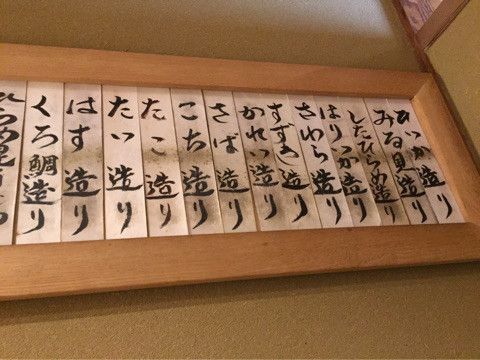 いか造り
みる貝造り
したひらめ造り
はりいか造り
さわら造り
すずき造り
かれい造り
さば造り
こち造り
たこ造り
たい造り
はす造り
くろ鯛造り